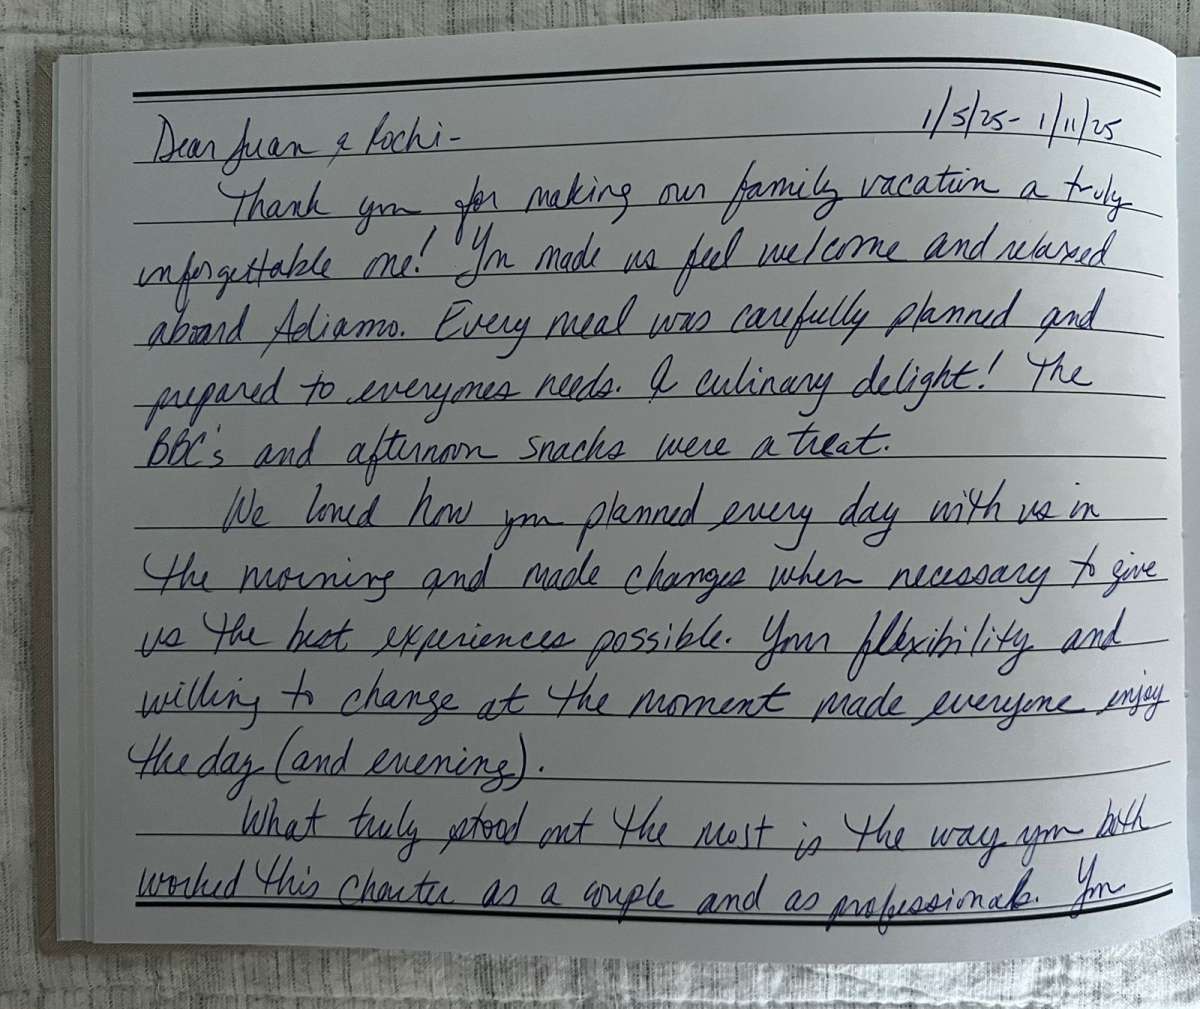 1/5/25 - 1/11/25
Dear Juan & Rochi -
Thank you for making our family vacation a truly
unforgettable one! You made us feel welcome and relaxed
aboard Adiamo. Every meal was carefully planned and
prepared to everyones needs. A culinary delight! The
BBC's and afternoon snacks were a treat.
We loved how you planned every day with us in
the morning and made changes when necessary to give
us the best experiences possible. Your flexibility and
willing to change at the moment made everyone enjoy
the day (and evening).
What truly stood out the most is the way you both
worked this charter as a couple and as professionals. You